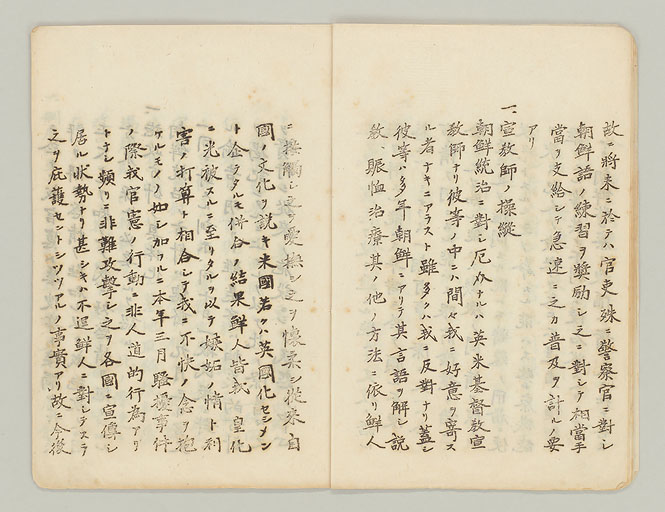 故ニ將来ニ於テハ官吏殊ニ警察官ニ對シ
朝鮮語ノ練習ヲ奨励シ之ニ對シテ相當手
當ヲ支給シテ急速ニ之カ普及ヲ計ルノ要
アリ
一、宣教師ノ操縦
朝鮮統治ニ對シ厄介ナルハ英米基督教宣
教師ナリ彼等ノ中ニハ間々我ニ好意ヲ寄ス
ル者ナキニアラスト雖多クハ我ニ反對ナリ蓋シ
彼等ハ多年朝鮮ニアリテ其言語ヲ解シ説
教、賑恤治療其ノ他ノ方法ニ依リ鮮人
ニ接觸シ之ヲ愛撫シ之ヲ懐柔シ従来自
國ノ文化ヲ説キ米國若クハ英國化セシメン
ト企ヲタルモ併合ノ結果鮮人皆我カ皇化
ニ光被スルニ至リタルヲ以テ嫉妬ノ情ト利
害ノ打算ト相合シテ我ニ不快ノ念ヲ抱
ケルモノノ如シ加フルニ本年三月騒擾事件
ノ際我官憲ノ行動ニ非人道的行為アリ
トナシ頻リニ非難攻撃シ之ヲ各國ニ宣傳シ
居ル状勢ナリ甚シキハ不逞鮮人ニ對シテスラ
之ヲ庇護セントシツツアルノ事實アリ故ニ今後